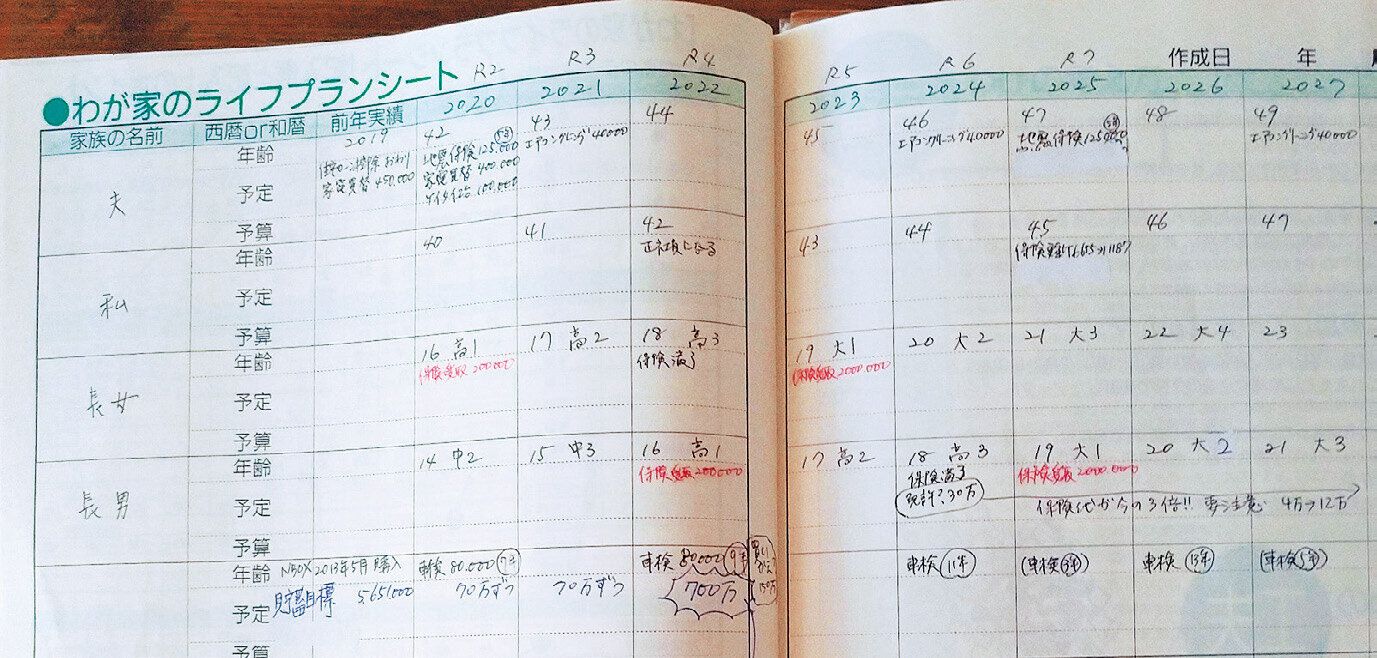 R2 R3 R4 R5 R6 R7 作成日 年
●わが家のライフプランシート
家族の名前 西暦or和暦 前年実績 2020 2021 2022 2023 2024 2025 2026 2027
2019
夫
年齢 42 43 44 45 46 47 48 49
住宅ローン控除 おわり 地震保険125.000 5年 エアコンクリーニング40000 エアコンクリーニング40000 地震保険125.000 5年 エアコンクリーニング40000
予定 家電買替 450,000 家電買替 400.000
100.000
予算
私
年齢 40 41 42 43 44 45 46 47
正社員になる 保険更新
予定
予算
長女
年齢 16 高1 17 高2 18 高3 19 大1 20 大2 21 大3 22 大4 23
保険受取 200000 保険満了 保険受取 2000.000
予定
予算
長男
年齢 14 中2 15 中3 16 高1 17 高2 18 高3 19 大1 20 大2 21 大3
保険受取 200000 保険満了 保険受取 2000.000
予定 免許?30万 保険代が今の3倍!! 要注意 4万→12万
予算
年齢 NBOX 2013年5月購入 車検 80.000 7年 車検 80.000 9年 車検 11年 (車検 3年) 車検 13年 (車検 5年)
予定 貯蓄目標 5,651,000 70万ずつ 70万ずつ 700万
150万
予算